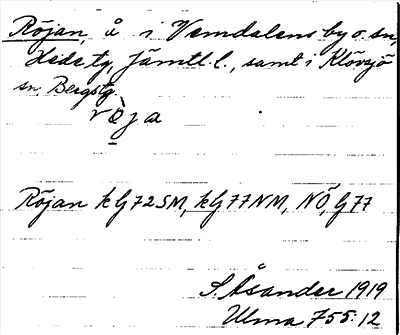 Röjan, å i Vemdalens by o. sn,
Hede tg, Jämtl. l., samt i Klövsjö
sn, Bergs tg.
rò̱ja
Röjan k G72SM, k G77NM, NÖ, G77
S. Åsander 1919
Ulma 755:12